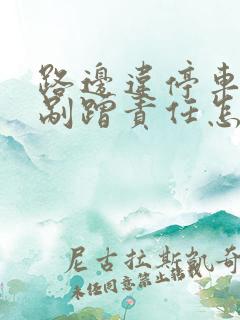 路邊違停車
剮蹭責任怎
尼古拉斯凱奇
未经同意禁止转载